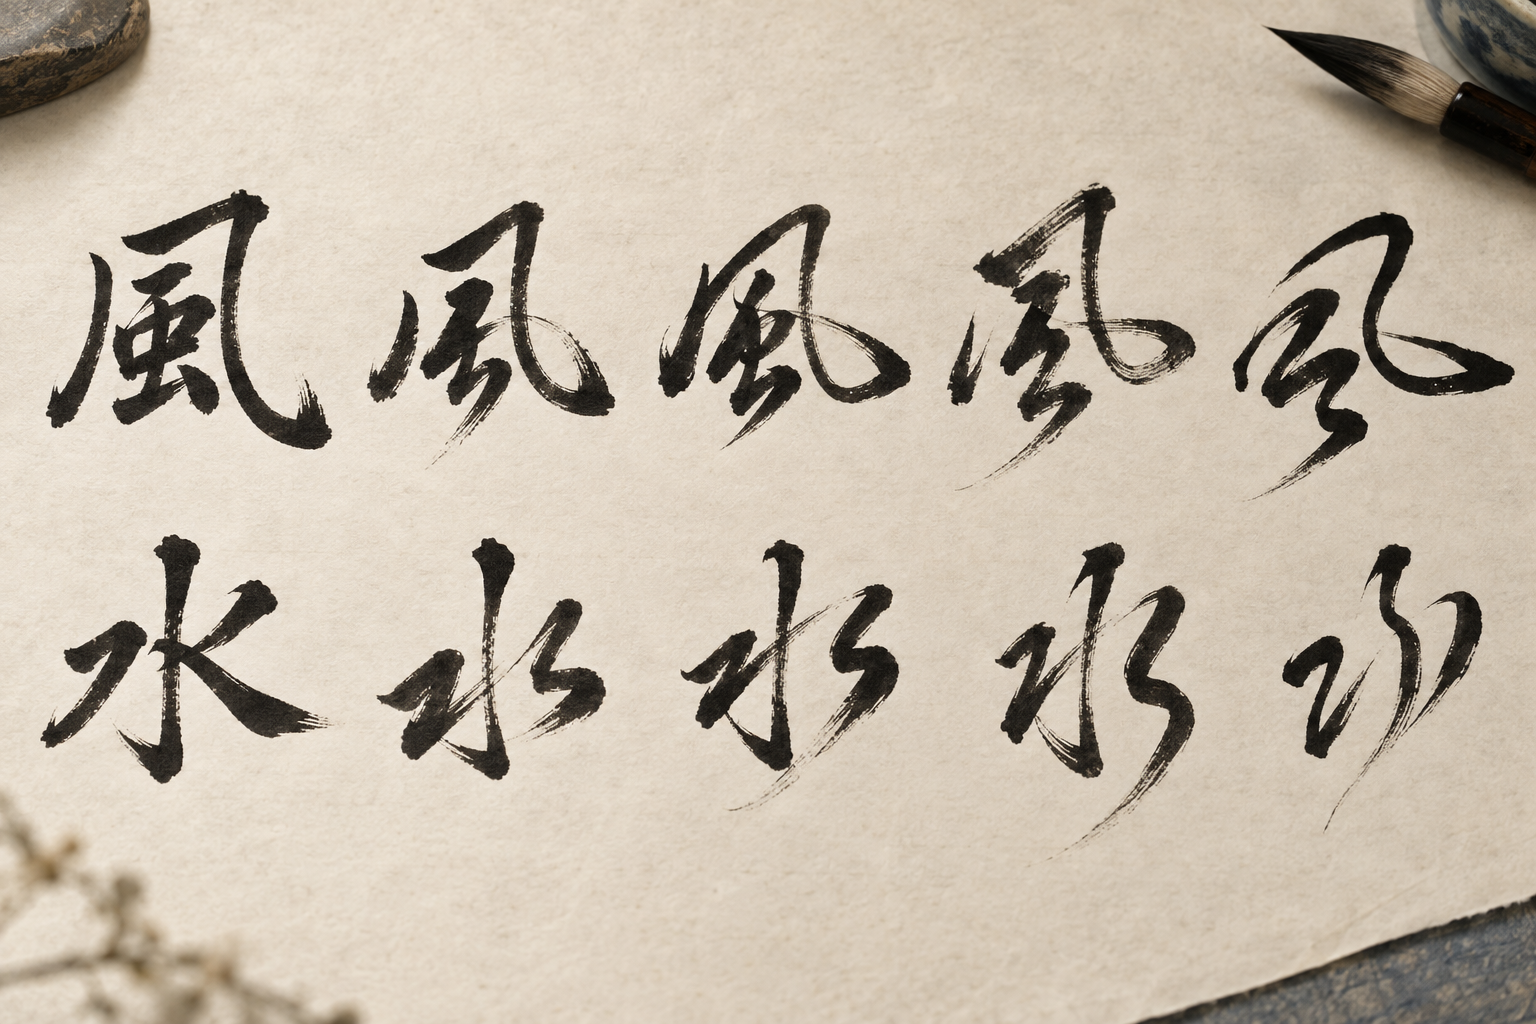 風 風 風 風 風
水 水 水 水 水